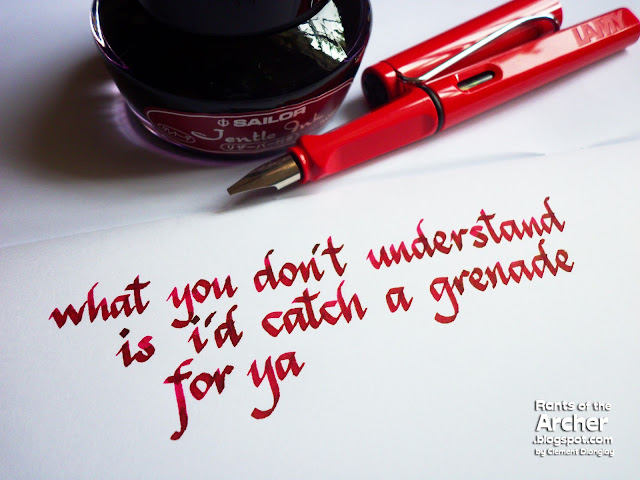 LAMY
SAILOR
Jentle Ink
what you don't understand
is i'd catch a grenade
for ya
Rants of the
Archer
.blogspot.com
by Clement Dionglay